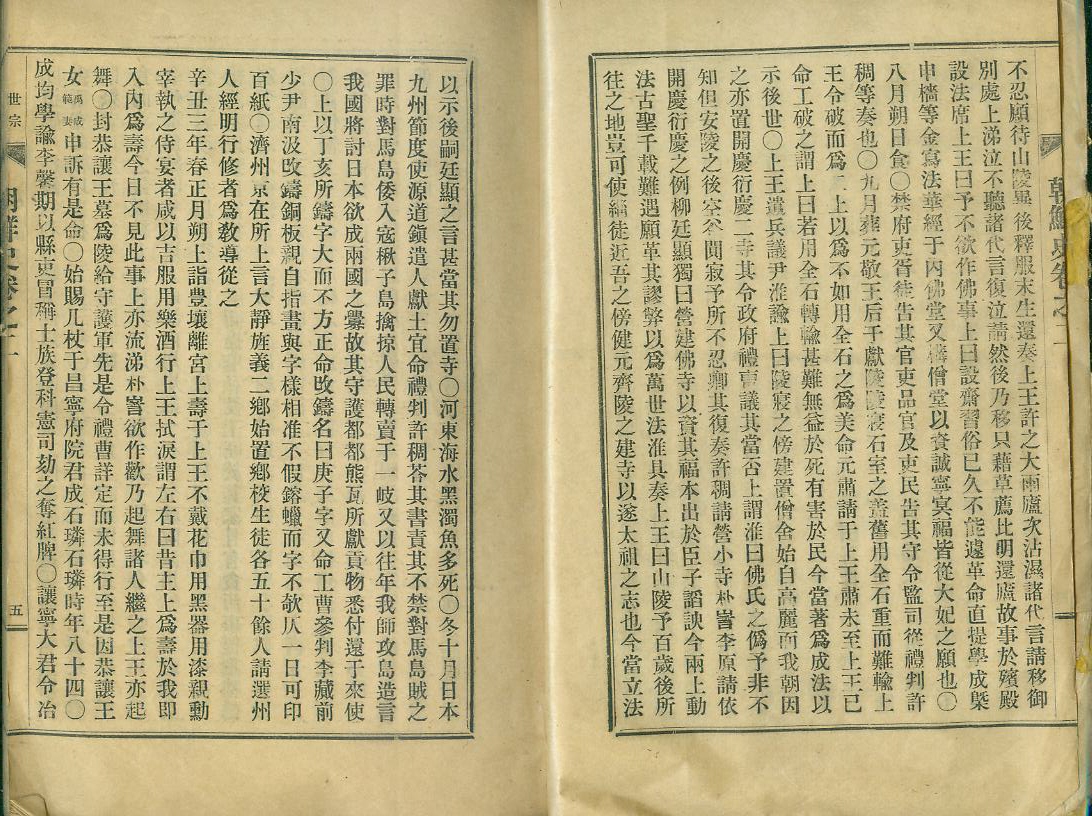 朝鮮史卷之一
不忍願待山陵畢後釋服末生還奏上王許之大雨廬次沾濕諸代言請移御
別處上涕泣不聽諸代言復泣請然後乃移只藉草薦比明還廬故事於殯殿
設法席上王曰予不欲作佛事上曰設齋習俗已久不能遽革命直提學成槩
申檣等金寫法華經于內佛堂又僧堂以資誠寧冥福皆從大妃之願也〇
八月朔日食〇禁府吏胥徒告其官吏品官及吏民告其守令監司從禮判許
稠等奏也〇九月葬元敬王后于獻陵陵寢石室之蓋舊用全石重而難輸上
王令破而爲二上以爲不如用全石之爲美命元肅請于上王肅未至上王已
命工破之謂上曰若用全石轉輸甚難無益於死有害於民今當著爲成法以
示後世〇上王遣兵議尹淮諭上曰陵寢之傍建置僧舍始自高麗而我朝因
之亦置開慶衍慶二寺其令政府禮曹議其當否上謂淮曰佛氏之僞予非不
知但安陵之後空谷閴寂予所不忍卿其復奏許稠請營小寺朴訔李原請依
開慶衍慶之例柳廷顯獨曰營建佛寺以資其福本出於臣子諂諛今兩上動
法古聖千載難遇願革其謬弊以爲萬世法淮具奏上王曰山陵予百歲後所
徃之地豈可使緇徒近吾之傍健元齊陵之建寺以遂太祖之志也今當立法
以示後嗣廷顯之言甚當其勿置寺〇河東海水黑濁魚多死〇冬十月日本
九州節度使源道鎭遣人獻土宜命禮判許稠荅其書責其不禁對馬島賊之
罪時對馬島倭入寇楸子島擒掠人民轉賣于一岐又以往年我師攻島造言
我國將討日本欲成兩國之釁故其守護都都熊瓦所獻貢物悉付還于來使
〇上以丁亥所鑄字大而不方正命改鑄名曰庚子字又命工曹參判李蕆前
少尹南汲改鑄銅板親自指畫與字樣相准不假鎔蠟而字不欹仄一日可印
百紙〇濟州京在所上言大靜旌義二鄕始置鄕校生徒各五十餘人請選州
人經明行修者爲敎導從之
辛丑三年春正月朔上詣豊壤離宮上壽于上王不戴花巾用黑器用漆親勳
宰執之侍宴者咸以吉服用樂酒行上王拭淚謂左右曰昔主上爲壽於我卽
入內爲壽今日不見此事上亦流涕朴訔欲作歡乃起舞諸人繼之上王亦起
舞〇封恭讓王墓爲陵給守護軍先是令禮曹詳定而未得行至是因恭讓王
女禹成範妻申訴有是命〇始賜几杖于昌寧府院君成石璘石璘時年八十四〇
成均學諭李馨期以縣吏冒稱士族登科憲司劾之奪紅牌〇讓寧大君令冶
世宗
朝鮮史卷之一
五